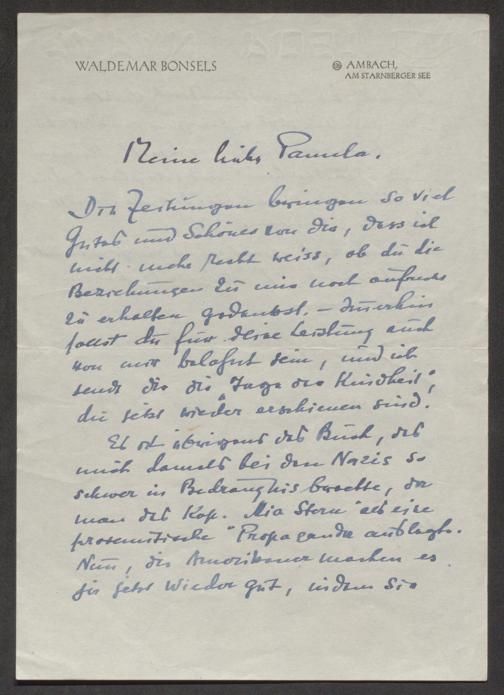 WALDEMAR BONSELS
AMBACH,
AM STARNBERGER SEE
Meine liebe Pamela.
Die Zeitungen bringen so viel
Gutes und Schönes von dir, dass ich
nicht mehr recht weiss, ob du die
Beziehungen zu mir noch aufrecht
zu erhalten gedenkst. – Immerhin
sollst du für deine Leistung auch
von mir belohnt sein, und ich
sende dir die „Tage der Kindheit",
die jetzt wieder erschienen sind.
Es ist übrigens das Buch, das
mich damals bei den Nazis so
schwer in Bedrängnis brachte, da
man das Kap. „Mia Stern" als eine
prosemitische Propaganda auslegte.
Nun, die Amerikaner machen es
jetzt wieder gut, indem sie